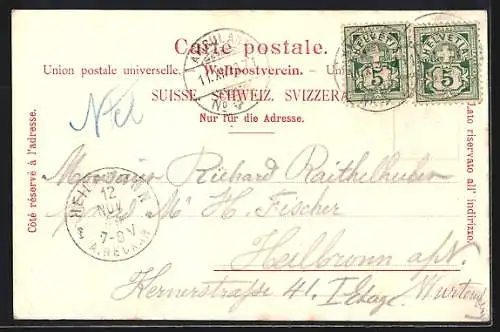 Carte postale.
Union postale universelle. Weltpostverein. Un
SUISSE. SCHWEIZ. SVIZZERA.
Nur für die Adresse.
Côté réservé à l'adresse.
Lato riservato all' indirizzo.
HELVETIA
5
HELVETIA
5
AMBULANT
No
HEILBRONN
12
NOV
7-8 V
A. NECKAR
Monsieur Richard Raithelhuber
M' H. Fischer
Heilbronn a/N.
Kernerstraße 41. I Etage.